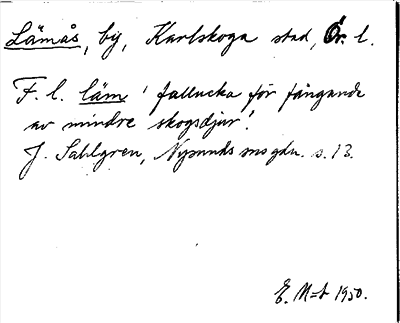 Lämås, by, Karlskoga stad, Ör. l.
F. l. läm 'fallucka för fångande
av mindre skogsdjur'.
J. Sahlgren, Nysunds sns gdn. s. 13.
E. M-t 1950.